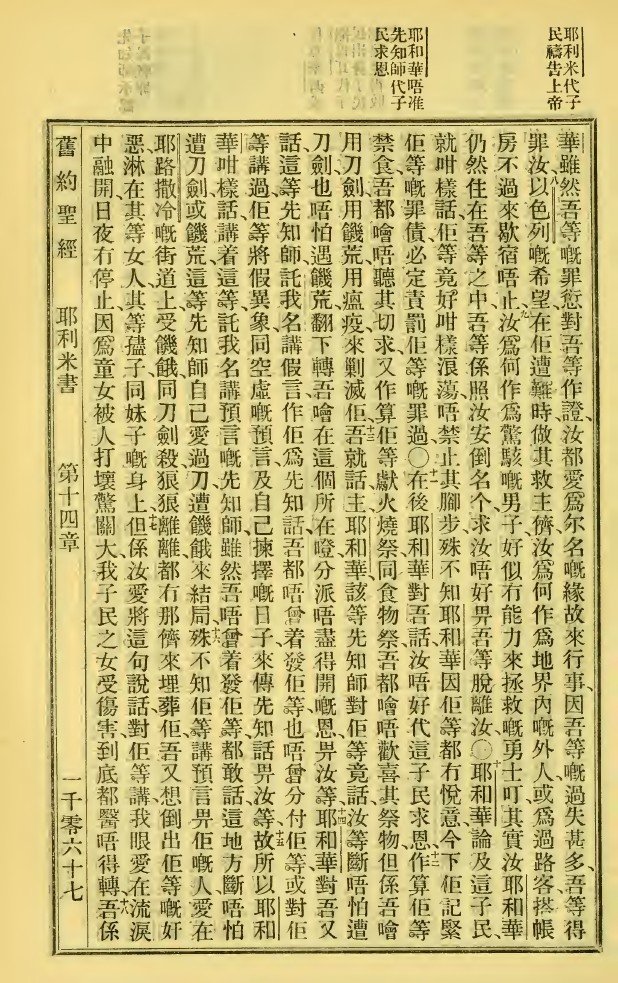 耶利米代子
民禱告上帝
耶和華唔准
先知師代子
民求恩
華雖然吾等嘅罪愆對吾等作證、汝都愛爲尔名嘅緣故來行事、因吾等嘅過失甚多、吾等得
罪汝、八以色列嘅希望、在佢遭難時做其救主儕、汝爲何作爲地界內嘅外人、或爲過路客搭帳
房不過來歇宿唔止、九汝爲何作爲驚駭嘅男子、好似冇能力來拯救嘅勇士叮、其實汝耶和華
仍然住在吾等之中、吾等係照汝安倒名个、求汝唔好畀吾等脫離汝、〇十耶和華論及這子民、
就咁樣話、佢等竟好咁樣浪蕩、唔禁止其腳步、殊不知耶和華因佢等都冇悅意、今下佢記緊
佢等嘅罪債、必定責罰佢等嘅罪過、〇十一在後耶和華對吾話、汝唔好代這子民求恩、十二作算佢等
禁食、吾都噲唔聽其切求、又作算佢等獻火燒祭同食物祭、吾都噲唔歡喜其祭物、但係吾噲
用刀劍用饑荒用瘟疫來剿滅佢、十三吾就話、主耶和華該等先知師對佢等竟話、汝等斷唔怕遭
刀劍、也唔怕遇饑荒、翻下轉吾噲在這個所在噔分派唔盡得開嘅恩畀汝等、十四耶和華對吾又
話、這等先知師託我名講假言、作佢爲先知話、吾都唔曾着發佢等、也唔曾分付佢等、或對佢
等講過、佢等將假異象、同空虛嘅預言、及自己揀擇嘅日子、來傳先知話畀汝等、十五故所以耶和
華咁樣話、講着這等託我名講預言嘅先知師、雖然吾唔曾着發佢等、都敢話這地方斷唔怕
遭刀劍或饑荒、這等先知師自己愛過刀遭饑餓來結局、十六殊不知佢等講預言畀佢嘅人、愛在
耶路撒冷嘅街道上受饑餓、同刀劍殺狼狼離離、都冇那儕來埋葬佢、吾又想倒出佢等嘅奸
惡、淋在其等女人其等孻子同妹子嘅身上、十七但係汝愛將這句說話對佢等講、我眼愛在流淚
中融開、日夜冇停止、因爲童女被人打壞驚關大、我子民之女受傷害到底、都醫唔得轉、十八吾係
舊約聖經　耶利米書　第十四章　一千零六十七